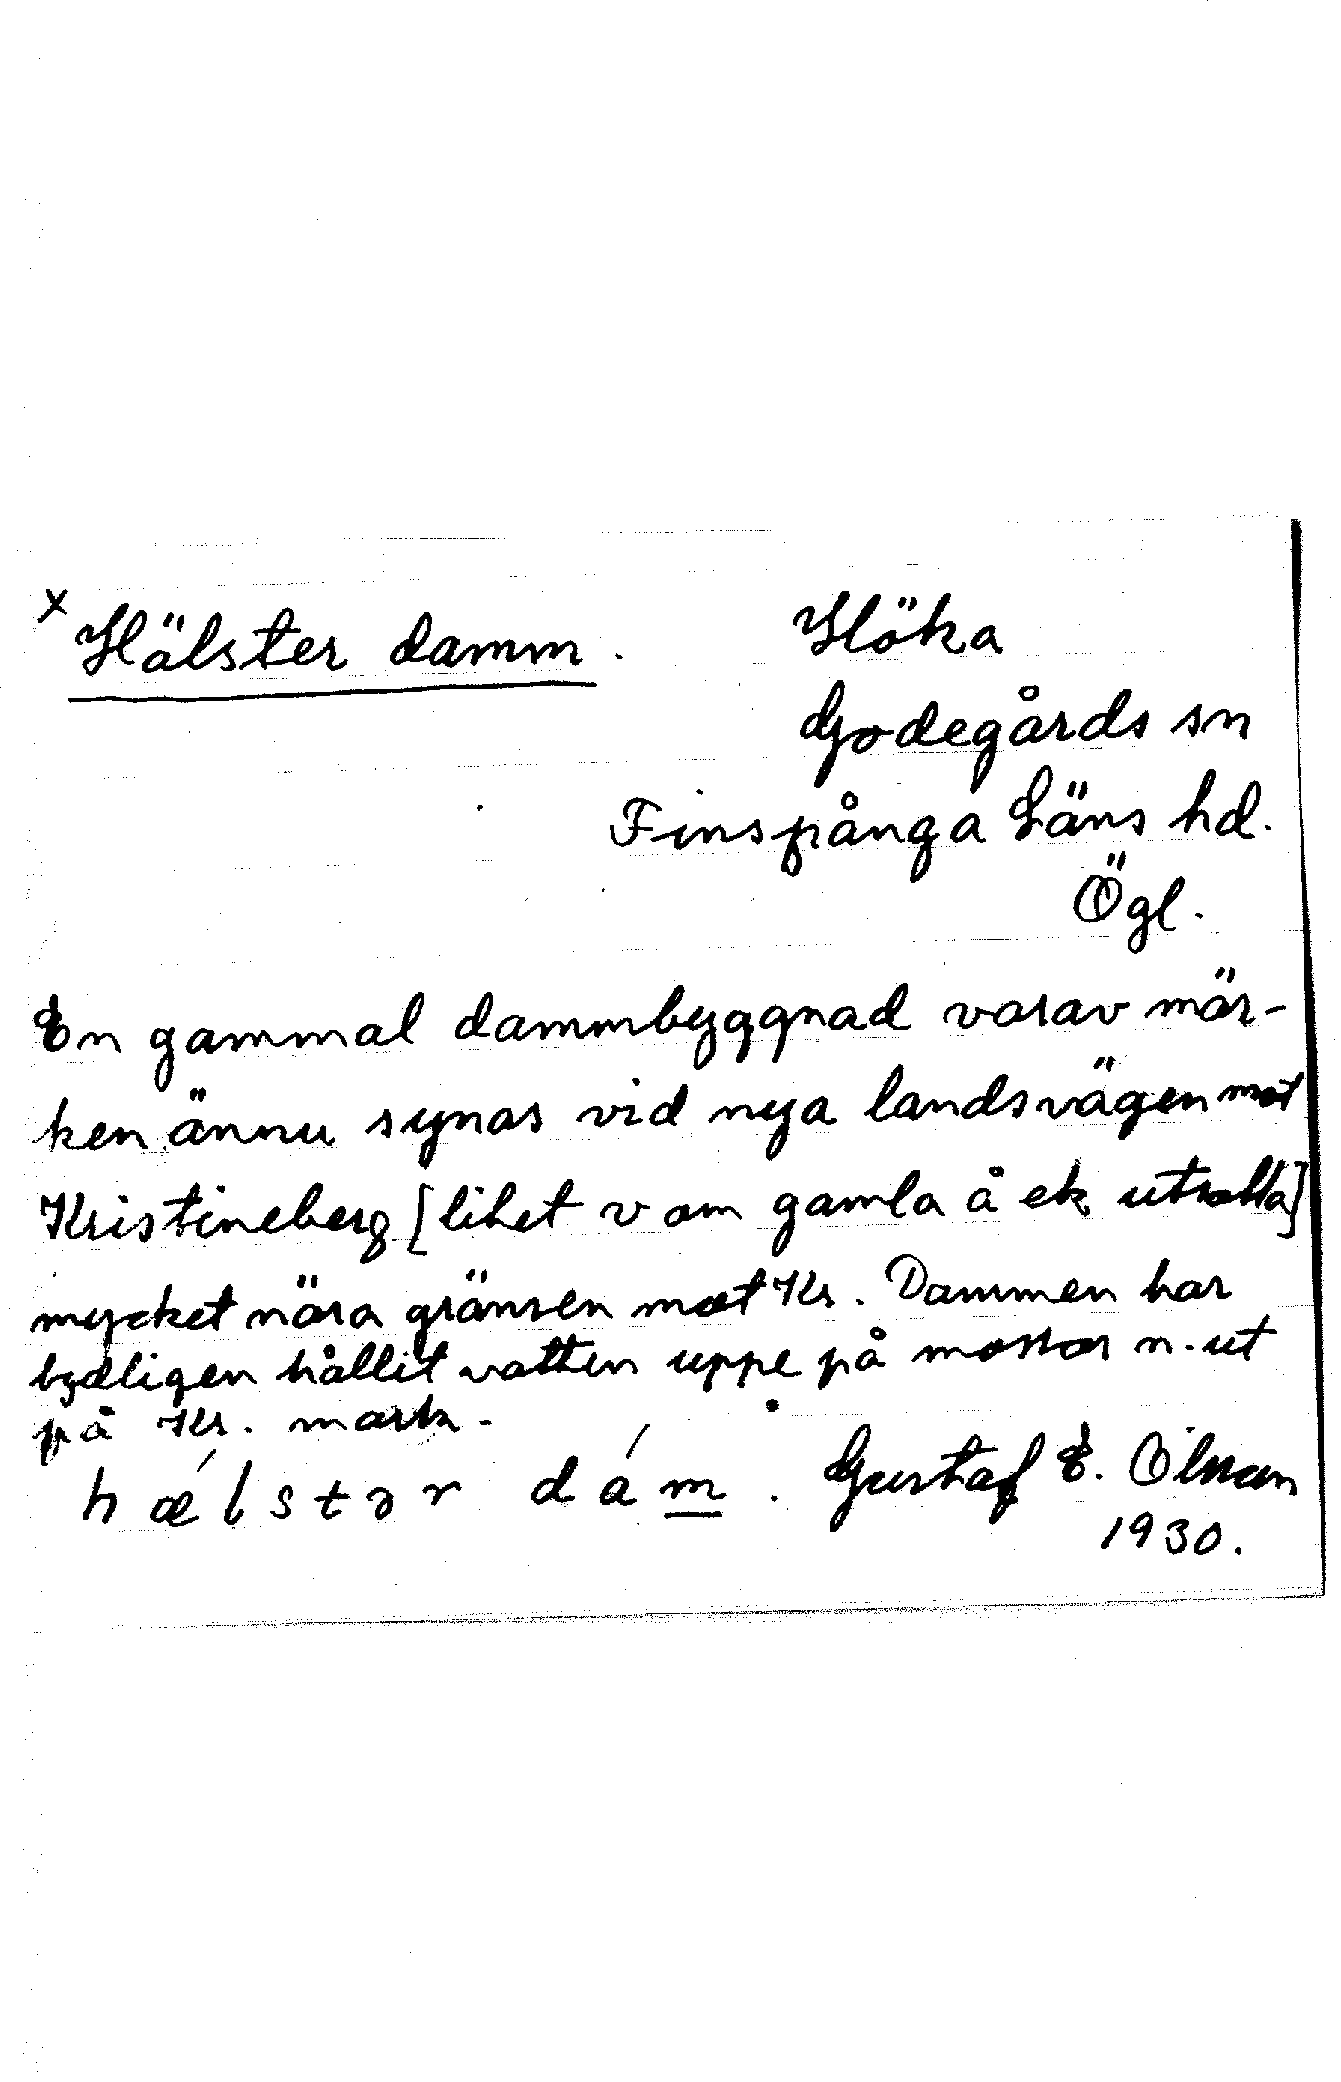 x Hälster damm. Höka
Godegårds sn
Finspånga Läns hd.
Ögl.
En gammal dammbyggnad varav mär-
ken ännu synas vid nya landsvägen mot
Kristineberg [litet v om gamla å ek
mycket nära gränsen mot Kr. Dammen har
tydligen hållit vatten uppe på mossar n. ut
på Kr. mark.
hælstər dám. Gustaf E. Olman
1930.